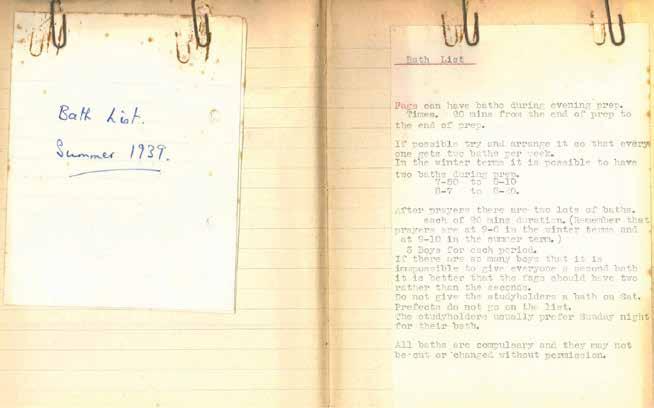 Bath List.
Summer 1939.
Bath List
Fags can have baths during evening prep.
Times. 20 mins from the end of prep to
the end of prep.
If possible try and arrange it so that every
one gets two baths per week.
In the winter terms it is possible to have
two baths during prep.
7-50 to 8-10
8-7 to 8-20.
After prayers there are two lots of baths.
each of 20 mins duration. (Remember that
prayers are at 9-0 in the winter terms and
at 9-10 in the summer term.)
3 Boys for each period.
If there are so many boys that it is
impossible to give everyone a second bath
it is better that the fags should have two
rather than the seconds.
Do not give the studyholders a bath on Sat.
Prefects do not go on the list.
The studyholders usually prefer Sunday night
for their bath.
All baths are compulsary and they may not
be cut or changed without permission.